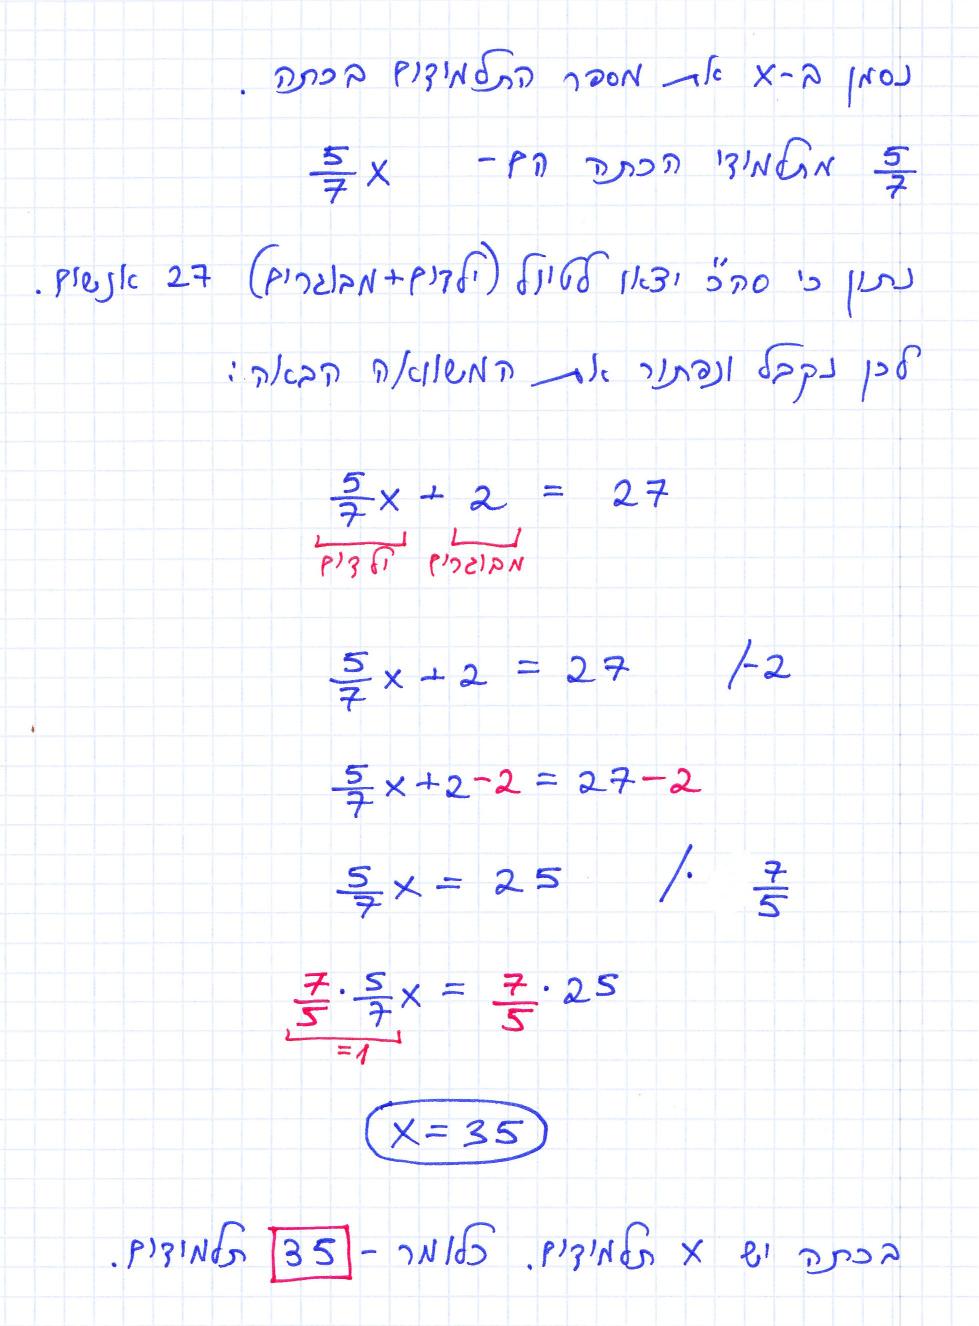 נסמן ב-x את מספר התלמידים בכתה.
5/7 מתלמידי הכתה הם - 5/7 x
נתון כי סה"כ יצאו לטיול (ילדים+מבוגרים) 27 אנשים.
לכן נקבל ונפתור את המשוואה הבאה:
5/7 x + 2 = 27
ילדים מבוגרים
5/7 x + 2 = 27 /-2
5/7 x + 2 - 2 = 27 - 2
5/7 x = 25 /· 7/5
7/5 · 5/7 x = 7/5 · 25
=1
x = 35
בכתה יש x תלמידים. כלומר - 35 תלמידים.